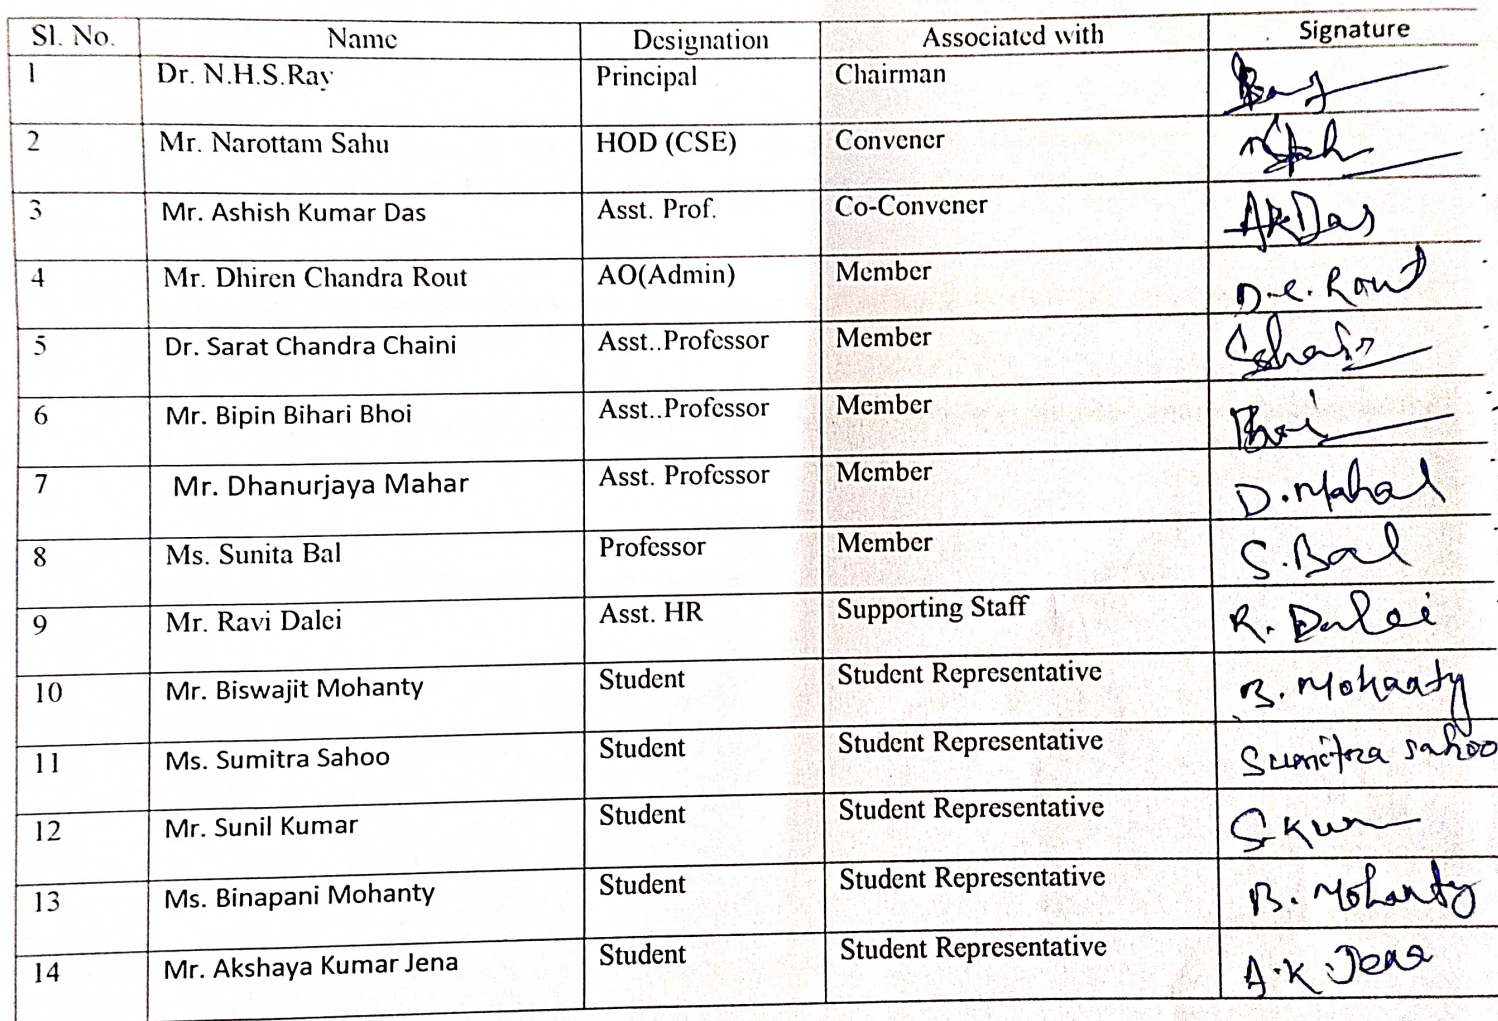 Sl. No. Name Designation Associated with Signature
1 Dr. N.H.S.Ray Principal Chairman
2 Mr. Narottam Sahu HOD (CSE) Convener
3 Mr. Ashish Kumar Das Asst. Prof. Co-Convener AKDas
4 Mr. Dhiren Chandra Rout AO(Admin) Member D.C. Rout
5 Dr. Sarat Chandra Chaini Asst..Professor Member
6 Mr. Bipin Bihari Bhoi Asst..Professor Member Bhoi
7 Mr. Dhanurjaya Mahar Asst. Professor Member D. Mahar
8 Ms. Sunita Bal Professor Member S. Bal
9 Mr. Ravi Dalei Asst. HR Supporting Staff R. Dalei
10 Mr. Biswajit Mohanty Student Student Representative B. Mohanty
11 Ms. Sumitra Sahoo Student Student Representative Sumitra sahoo
12 Mr. Sunil Kumar Student Student Representative
13 Ms. Binapani Mohanty Student Student Representative B. Mohanty
14 Mr. Akshaya Kumar Jena Student Student Representative A.K Jena